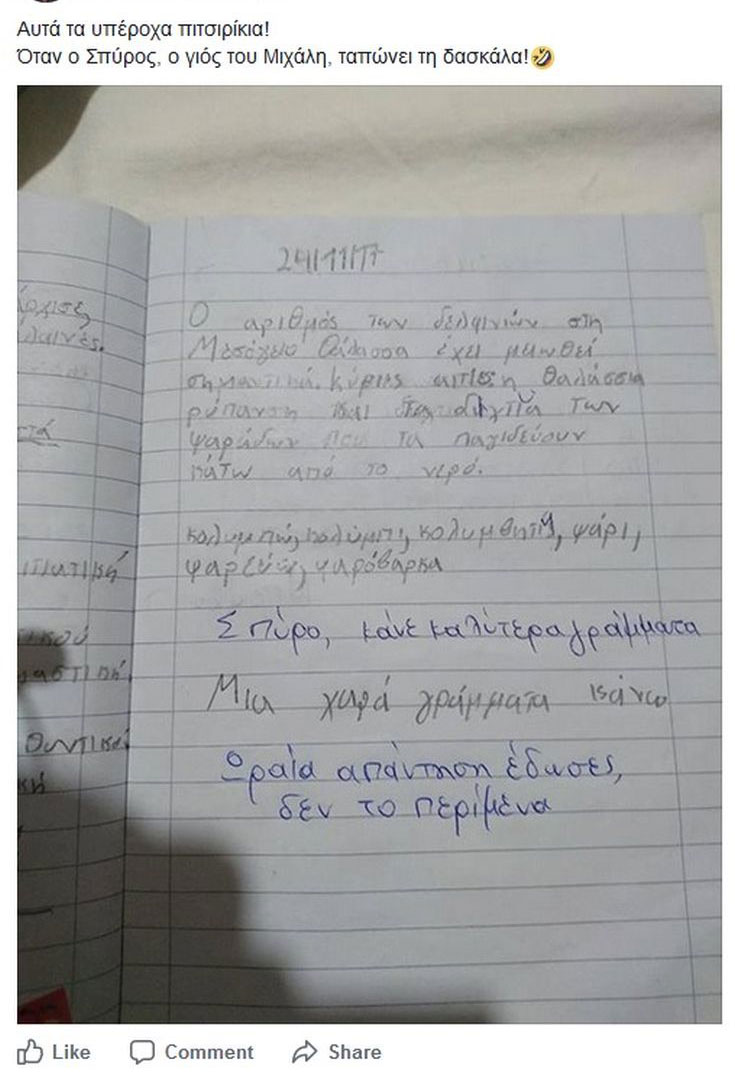 Αυτά τα υπέροχα πιτσιρίκια!
Όταν ο Σπύρος, ο γιός του Μιχάλη, ταπώνει τη δασκάλα!🤣
24/11/17
Ο αριθμός των δελφινιών στη
Μεσόγειο Θάλασσα έχει μειωθεί
σημαντικά. Κύριες αιτίες η θαλάσσια
ρύπανση και τα δίχτυα των
ψαράδων που τα παγιδεύουν
κάτω από το νερό.
κολυμπώ, κολύμπι, κολυμβητής, ψάρι,
ψαρεύω, ψαρόβαρκα
Σπύρο, κάνε καλύτερα γράμματα
Μια χαρά γράμματα κάνω
Ωραία απάντηση έδωσες,
δεν το περίμενα
Like Comment Share